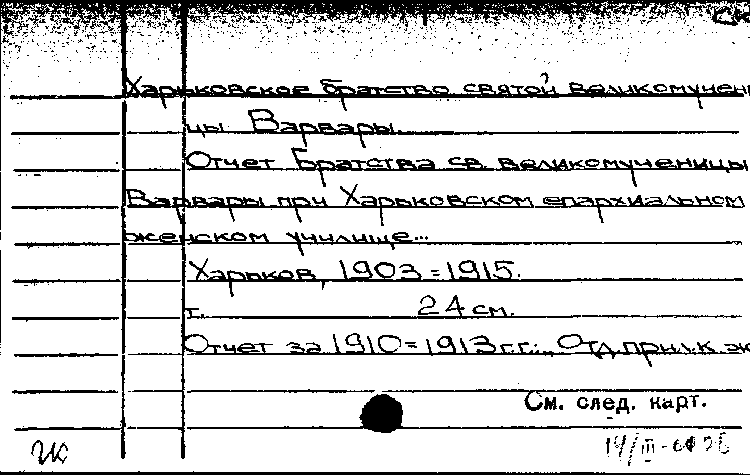 Харьковское братство святой великомучени
цы Варвары.
Отчет Братства св. великомученицы
Варвары при Харьковском епархиальном
женском училище...
Харьков, 1903=1915.
т. 24 см.
Отчет за 1910=1913 г.г.: „Отд. прил. к эк
См. след. карт.